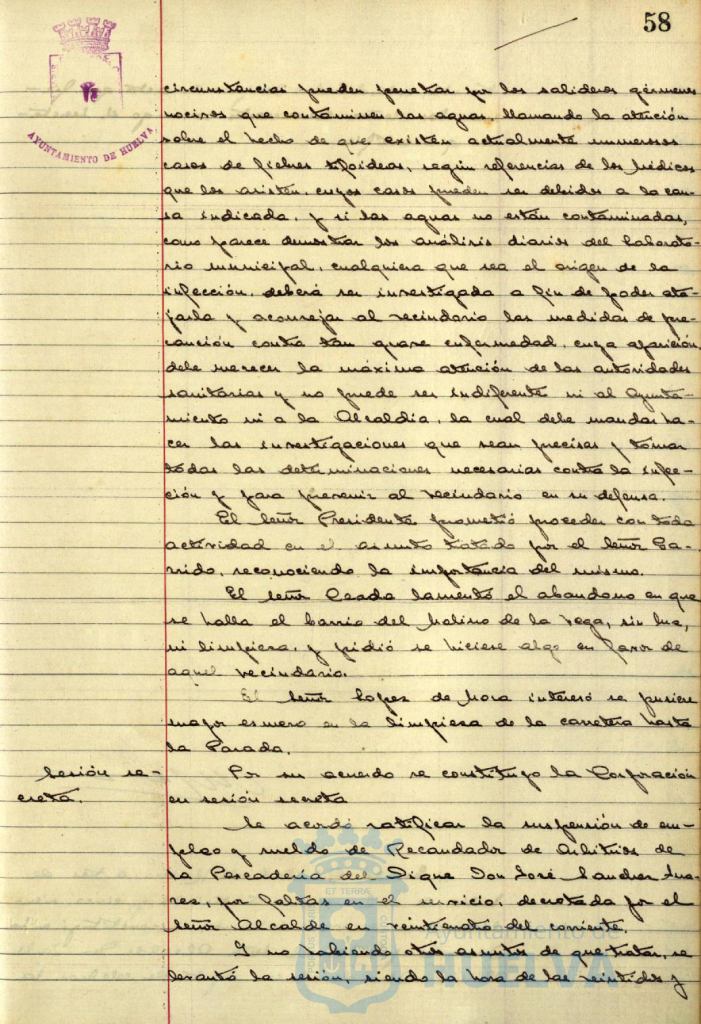 58
AYUNTAMIENTO DE HUELVA
circunstancias pueden penetrar por los salideros gérmenes
nocivos que contaminen las aguas, llamando la atención
sobre el hecho de que existen actualmente numerosos
casos de fiebres tifoideas, según referencias de los Médicos
que los asisten, cuyos casos pueden ser debidos a la cau-
sa indicada, y si las aguas no están contaminadas,
como parece demostrar los análisis diarios del Laborato-
rio municipal, cualquiera que sea el origen de la
infección, deberá ser investigada a fin de poder ata-
jarla y aconsejar al vecindario las medidas de pre-
caución contra tan grave enfermedad, cuya aparición
debe merecer la máxima atención de las autoridades
sanitarias y no puede ser indiferente ni al Ayunta-
miento ni a la Alcaldía, la cual debe mandar ha-
cer las investigaciones que sean precisas y tomar
todas las determinaciones necesarias contra la infec-
ción y para prevenir al vecindario en su defensa.
El Señor Presidente prometió proceder con toda
actividad en el asunto tratado por el Señor Ga-
rrido, reconociendo la importancia del mismo.
El Señor lamentó el abandono en que
se halla el barrio del Molino de la Vega, sin luz,
ni limpieza, y pidió se hiciese algo en favor de
aquel vecindario.
El Señor Lopez de Mora interesó se pusiese
mayor esmero en la limpieza de la carretera hasta
la Parada.
Sesión se-
creta.
Por su acuerdo se constituyo la Corporación
en sesión secreta
Se acordó ratificar la suspensión de em-
pleo y sueldo de Recaudador de Arbitrios de
la Pescadería del Dique Don José Sanchez Sua-
rez, por faltas en el servicio, decretada por el
Señor Alcalde en veinticuatro del corriente.
Y no habiendo otros asuntos de que tratar, se
levantó la sesión, siendo la hora de las veintidos y
ET TERRÆ
Ayuntamiento
HUELVA